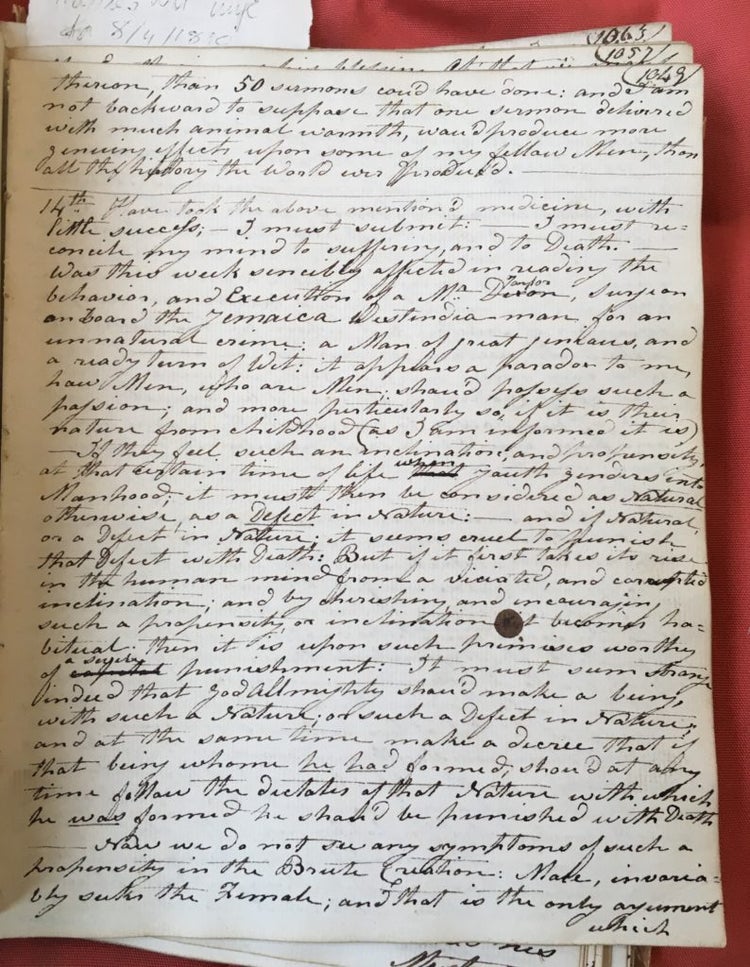 to 8/4/18
1063
1057
1049
thereon, than 50 sermons cou'd have done: and I am
not backward to suppose that one sermon delivered
with much animal warmth, wou'd produce more
genuine effects upon some of my fellow Men, than
all the history the World ever produced. —
14th Have took the above mention'd medicine, with
little success; — I must submit: — I must re=
concile my mind to suffering, and to Death. —
Was this week sencibly affected in reading the
behavior, and Execution of a Mr Taylor Dixon, Surgeon
on board the Jemaica Westindia-man for an
unnatural crime: a Man of great genious, and
a ready turn of Wit: it appears a paradox to me,
how Men, who are Men, shou'd possess such a
passion; and more particularly so, if it is their
nature from childhood (as I am informed it is)
— If they feel such an inclination, and propensity,
at that certain time of life when youth genders into
Manhood; it must then be considered as Natural
otherwise, as a Defect in Nature: — and if Natural,
or a Defect in Nature; it seems cruel to punish
that Defect with Death: But if it first takes its rise
in the human mind from a viciated, and corrupted
inclination; and by cherishing and incouraging
such a propensity, or inclination it becomes ha=
bitual: then it is upon such premises worthy
of a severe capital punishment: It must seem strange
indeed that God Allmighty shou'd make a being,
with such a Nature; or such a Defect in Nature;
and at the same time make a decree that if
that being whome he had formed, shou'd at any
time follow the dictates of that Nature with which
he was formed he shou'd be punished with Death
— Now we do not see any symptoms of such a
propensity in the Brute Creation: Male, invaria=
bly seeks the Female; and that is the only argument
which